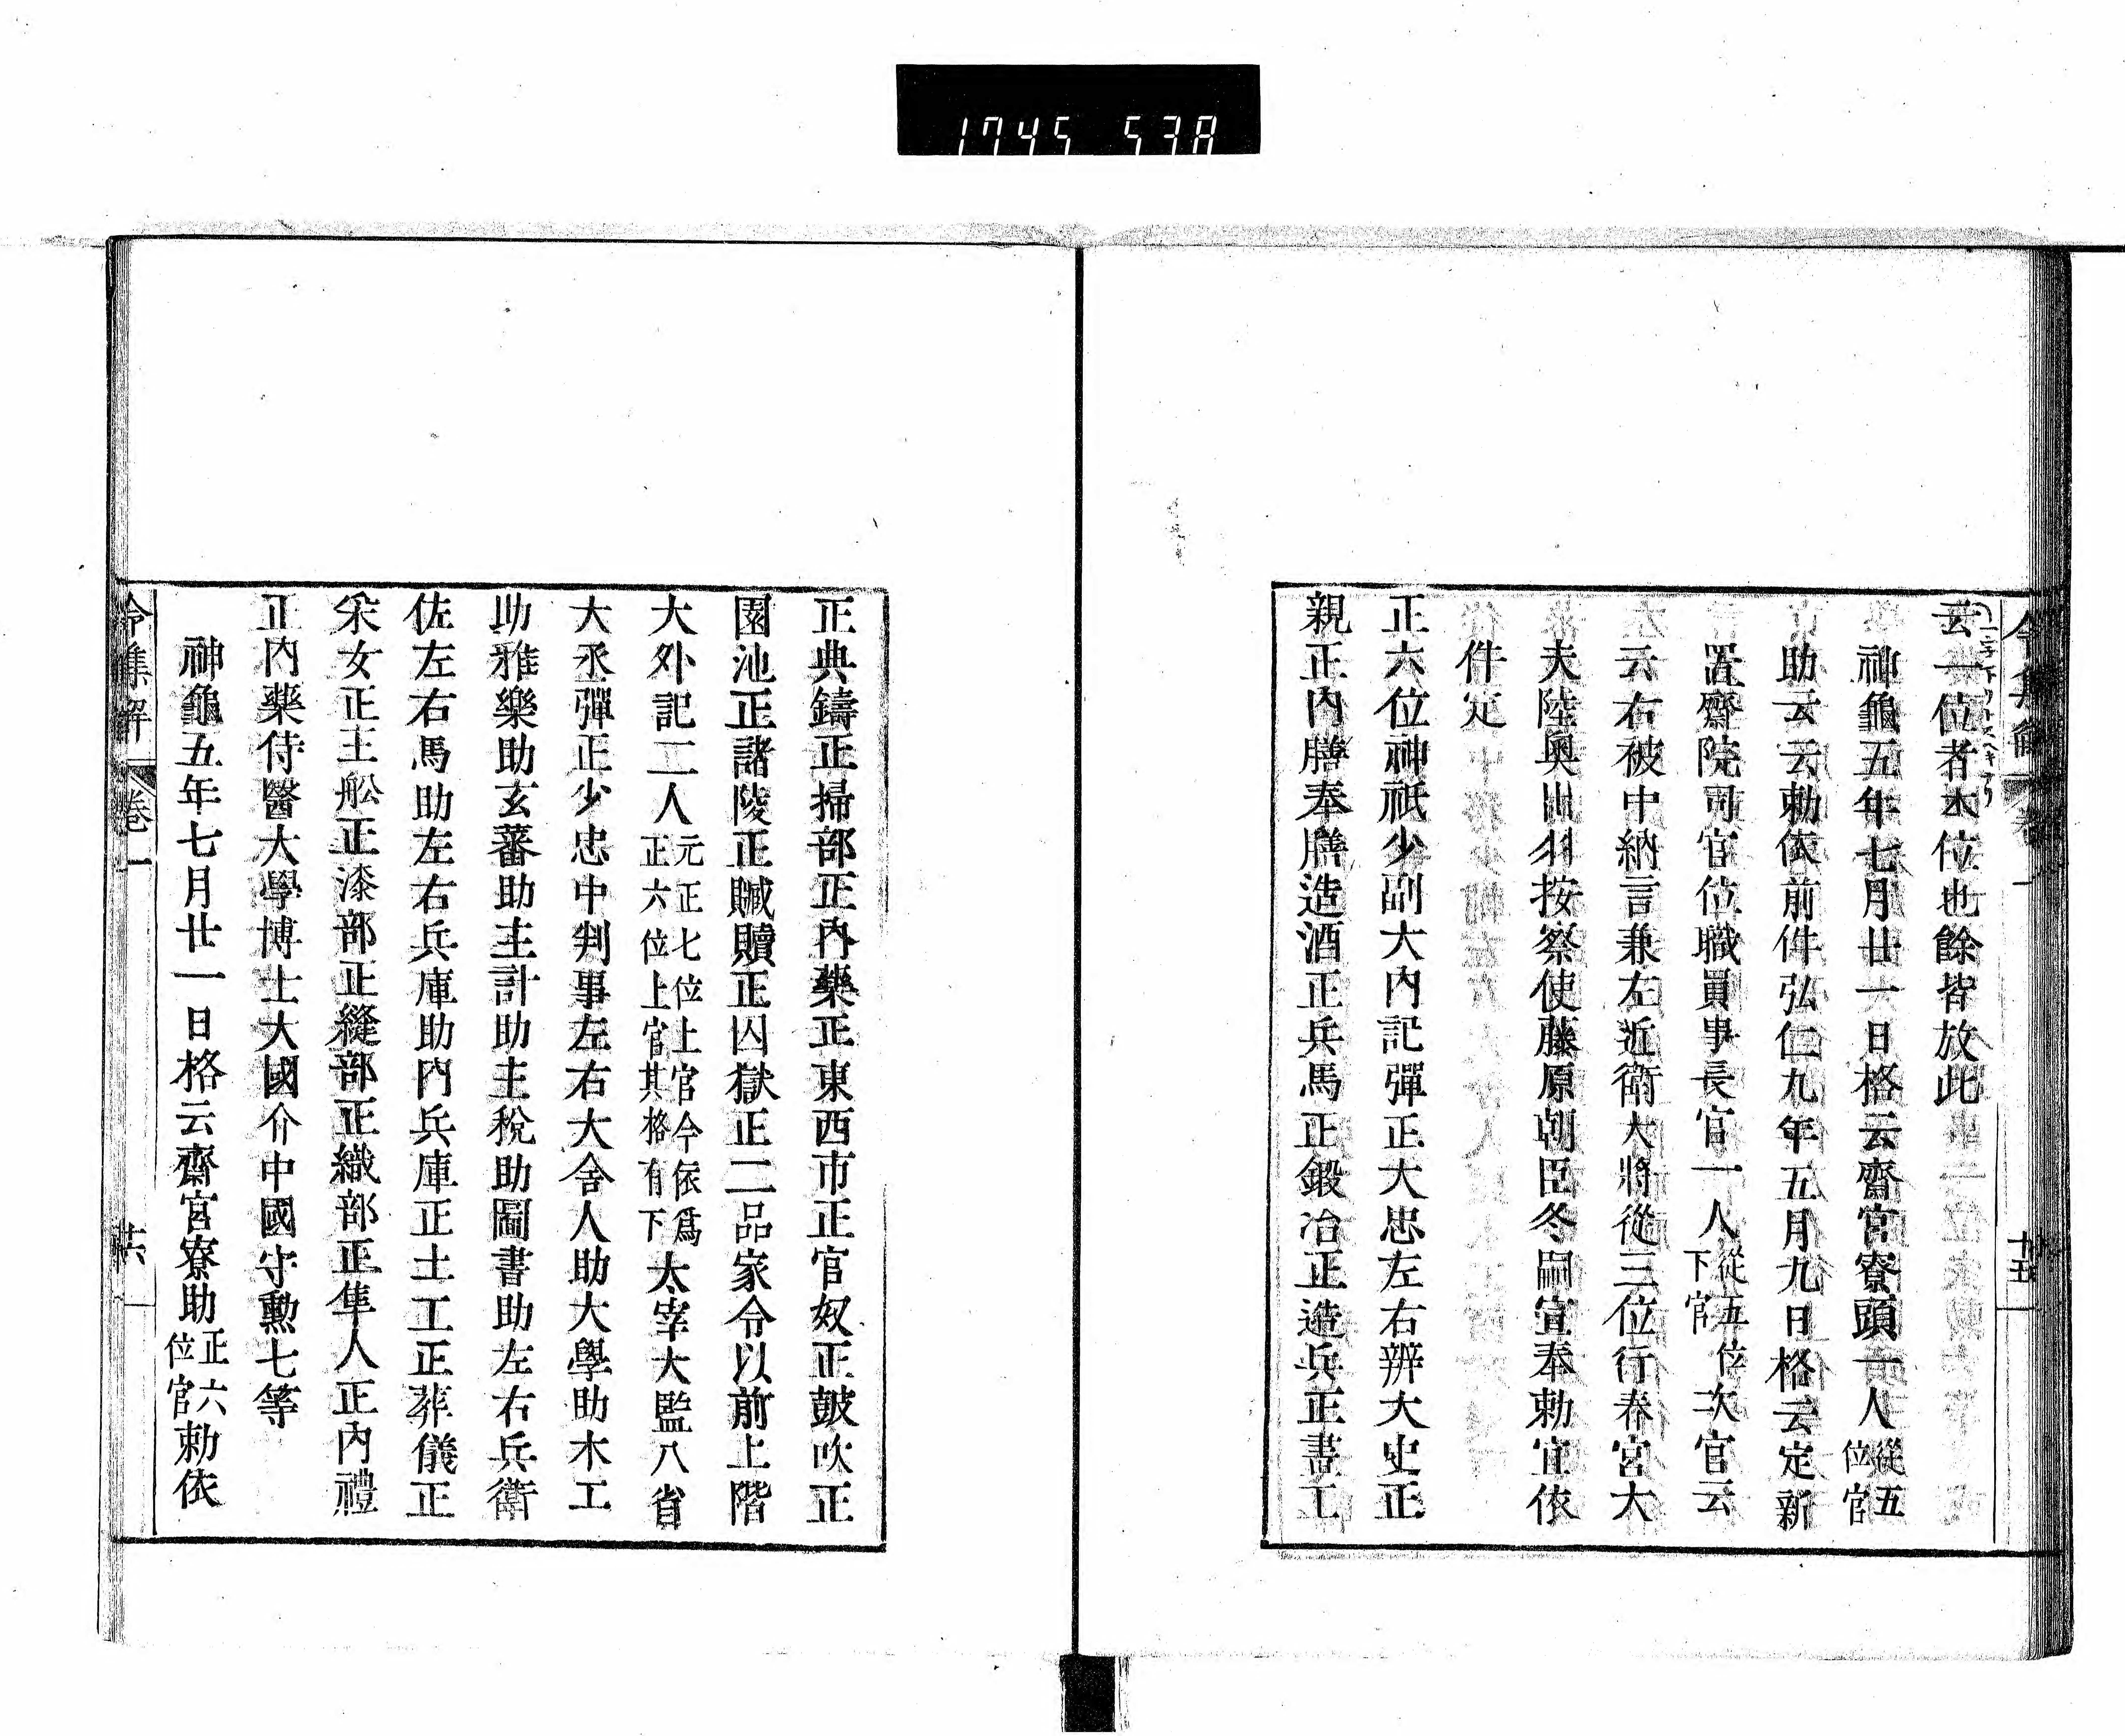 1745 538
令集解 卷一 廿五
云一位者本位也餘皆放此
神龜五年七月廿一日格云齋宮寮頭一人從五位官
助云云勅依前件弘仁九年五月九日格云定新
置齋院司官位職員事長官一人從五位下官次官云
云右被中納言兼左近衛大將從三位行春宮大
夫陸奧出羽按察使藤原朝臣冬嗣宣奉勅宜依
件定
正六位神祇少副大內記彈正大忠左右辨大史正
親正內膳奉膳造酒正兵馬正鍛冶正造兵正畫工
正典鑄正掃部正內藥正東西市正官奴正鼓吹正
園池正諸陵正贓贖正囚獄正二品家令以前上階
大外記二人元正七位上官今依爲正六位上官其格有下太宰大監八省
大丞彈正少忠中判事左右大舍人助大學助木工
助雅樂助玄蕃助主計助主稅助圖書助左右兵衛
佐左右馬助左右兵庫助內兵庫正土工正葬儀正
采女正主船正漆部正縫部正織部正隼人正內禮
正內藥侍醫大學博士大國介中國守勳七等
神龜五年七月廿一日格云齋宮寮助正六位官勅依
令集解 卷一 廿六